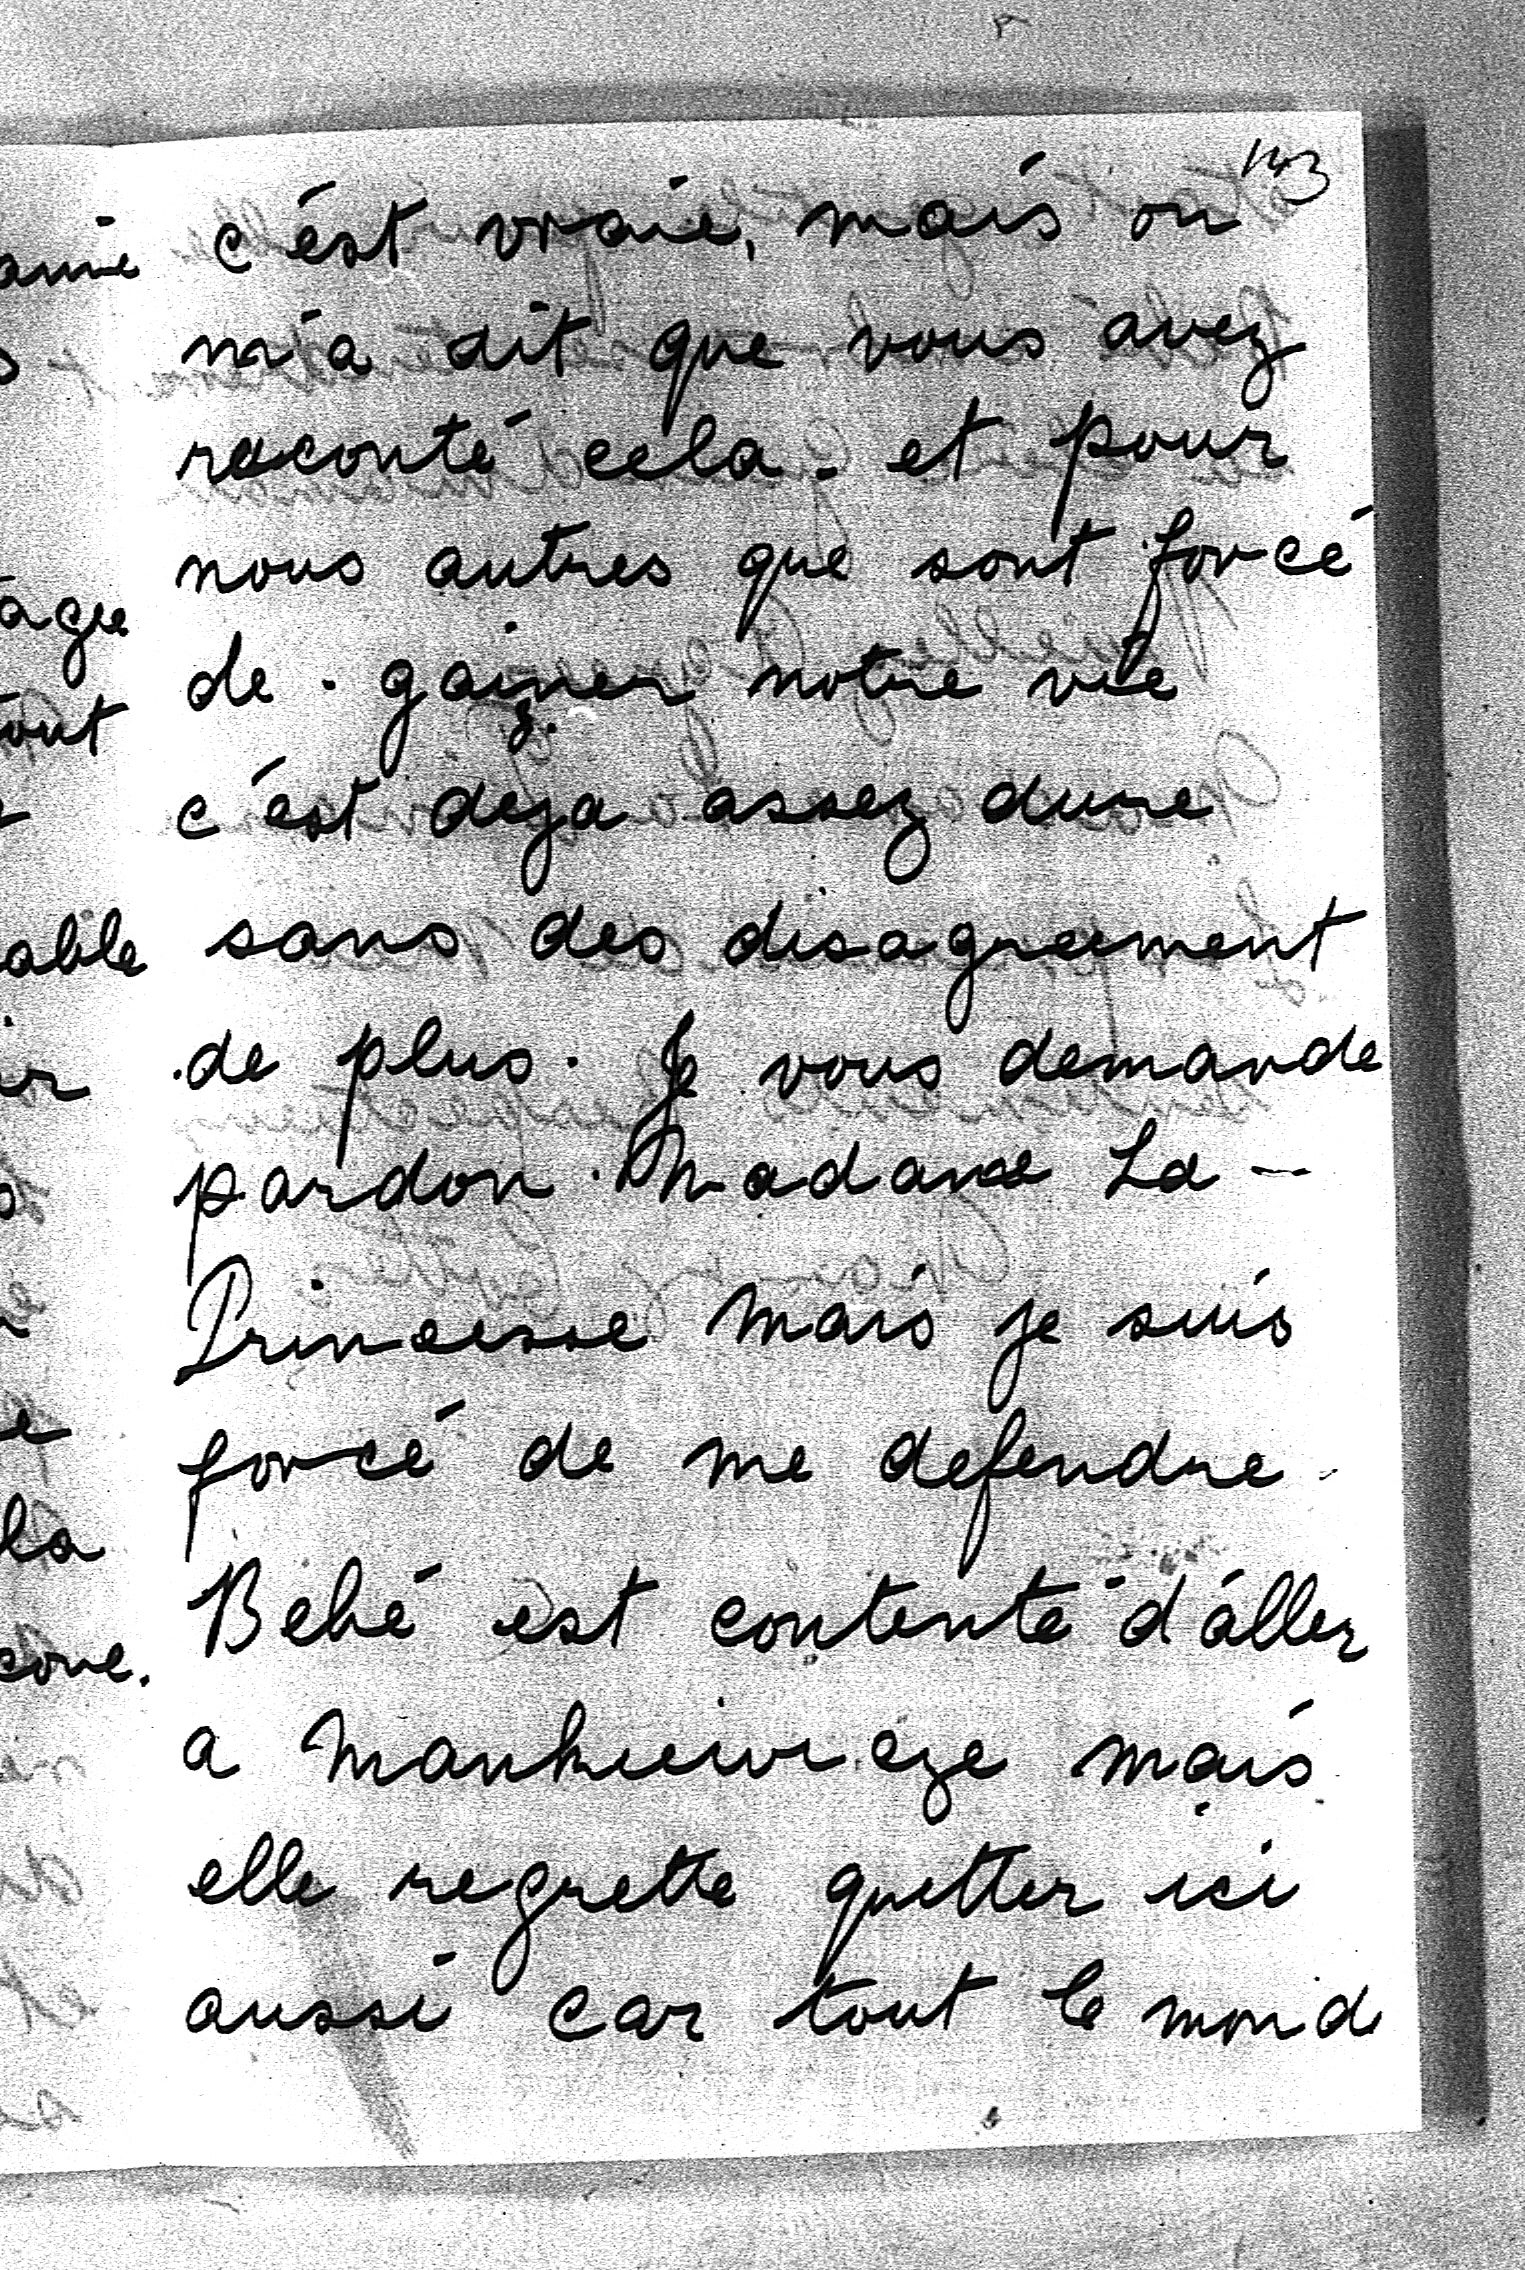 143
c'ést vraie, mais on
m'a dit que vous avez
raconté cela. et pour
nous autres que sont forcé
de. gainer notre vie
c'ést deja assez dure
sans des disagreement
de plus. Je vous demande
pardon. Madame La -
Princesse Mais je suis
forcé de me defendre
Bebé est contenté d'áller
a Mankiewicze mais
elle regrette quitter ici
aussi car tout le monde